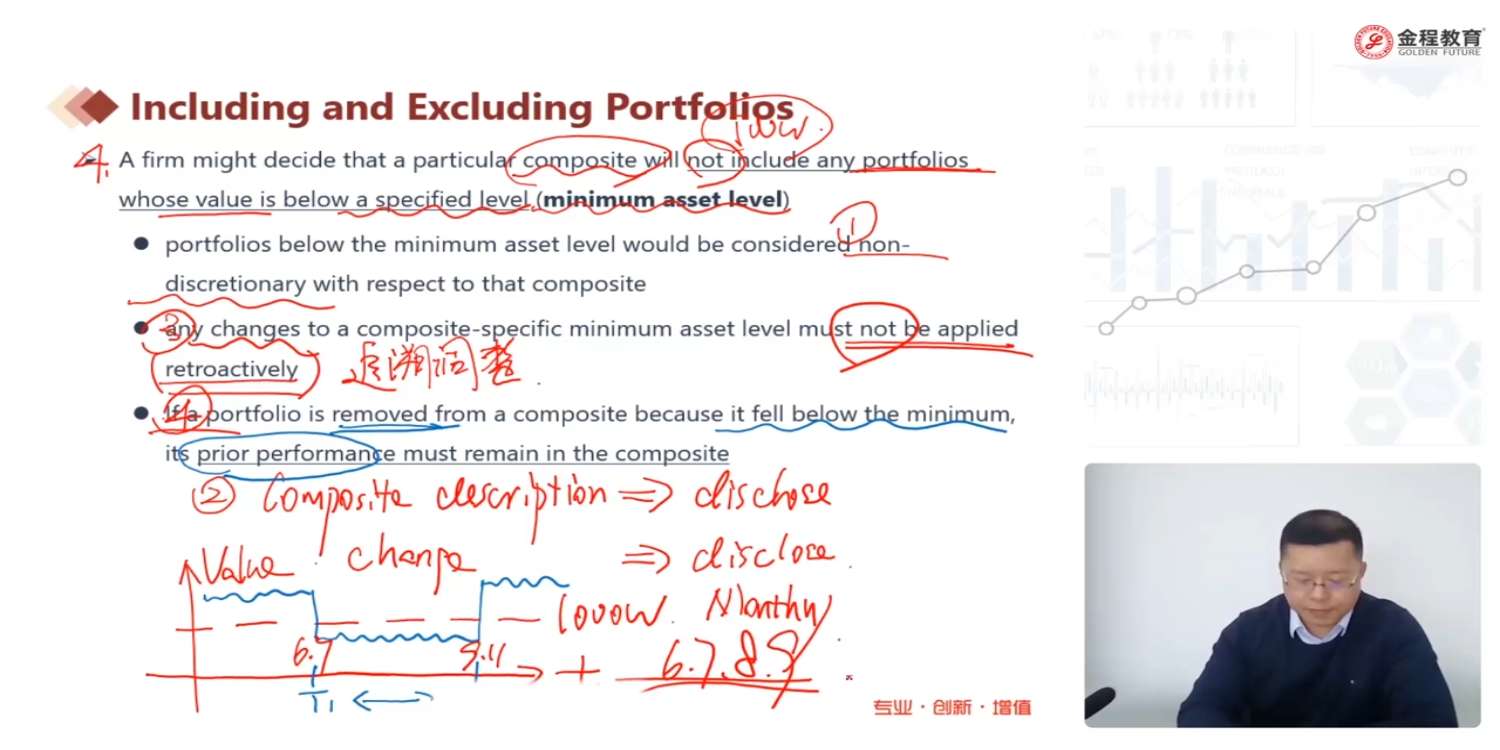 金程教育
GOLDEN FUTURE
Including and Excluding Portfolios
100W.
4. A firm might decide that a particular composite will not include any portfolios
whose value is below a specified level (minimum asset level)
①
portfolios below the minimum asset level would be considered non-
discretionary with respect to that composite
③ any changes to a composite-specific minimum asset level must not be applied
retroactively 追溯调整.
④ If a portfolio is removed from a composite because it fell below the minimum,
its prior performance must remain in the composite
② Composite description ⇒ disclose
Value change ⇒ disclose.
1000W. Monthly
6.7 9.11 6.7.8.9
T1
专业·创新·增值